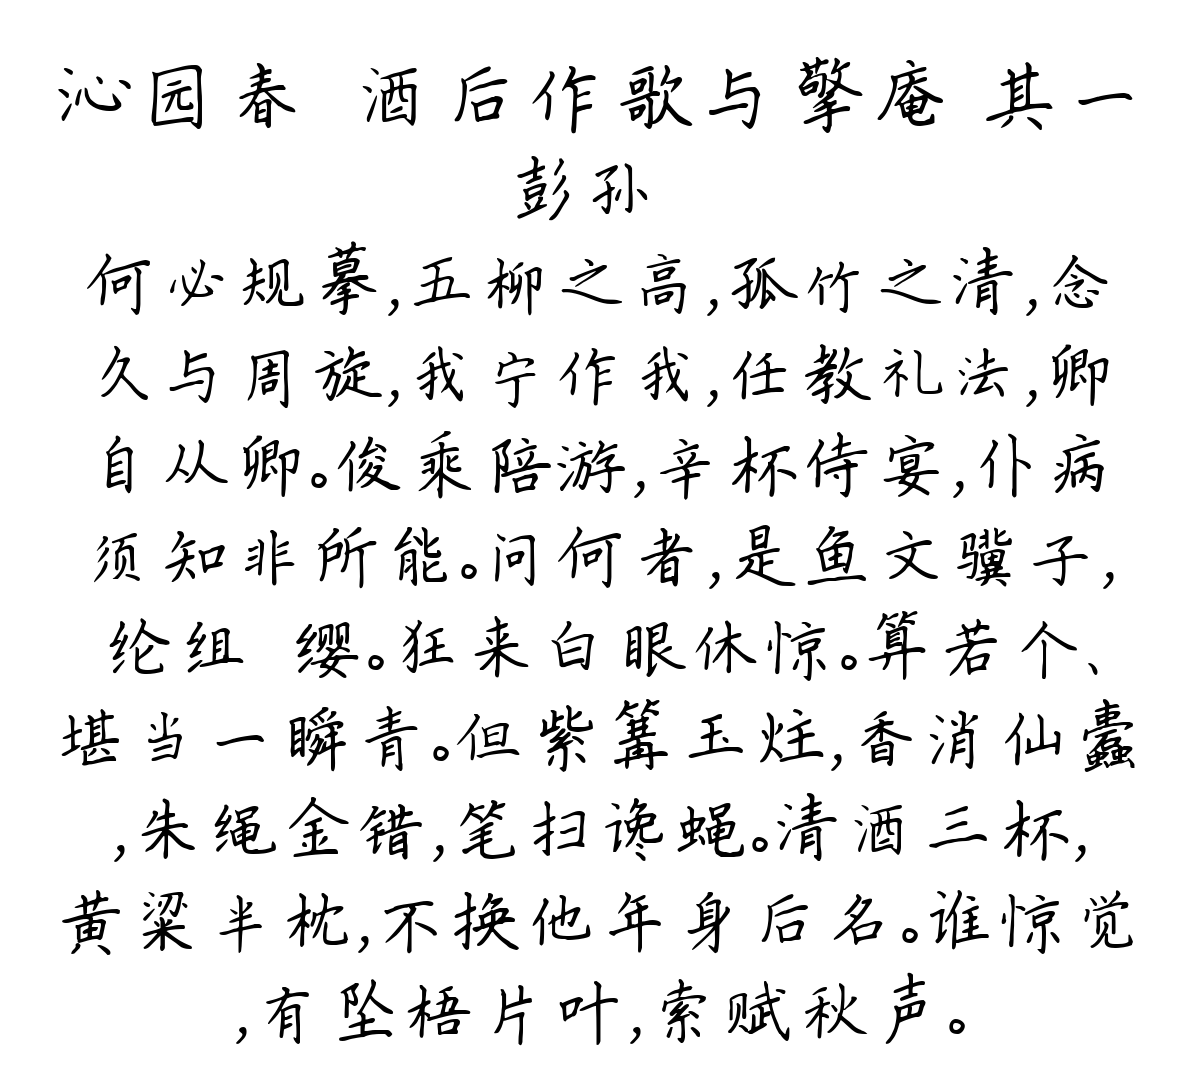 沁园春 酒后作歌与擎庵 其一
彭孙
何必规摹,五柳之高,孤竹之清,念
久与周旋,我宁作我,任教礼法,卿
自从卿。俊乘陪游,辛杯侍宴,仆病
须知非所能。问何者,是鱼文骥子,
纶组 缨。狂来白眼休惊。算若个、
堪当一瞬青。但紫篝玉炷,香消仙蠹
,朱绳金错,笔扫谗蝇。清酒三杯,
黄粱半枕,不换他年身后名。谁惊觉
,有坠梧片叶,索赋秋声。